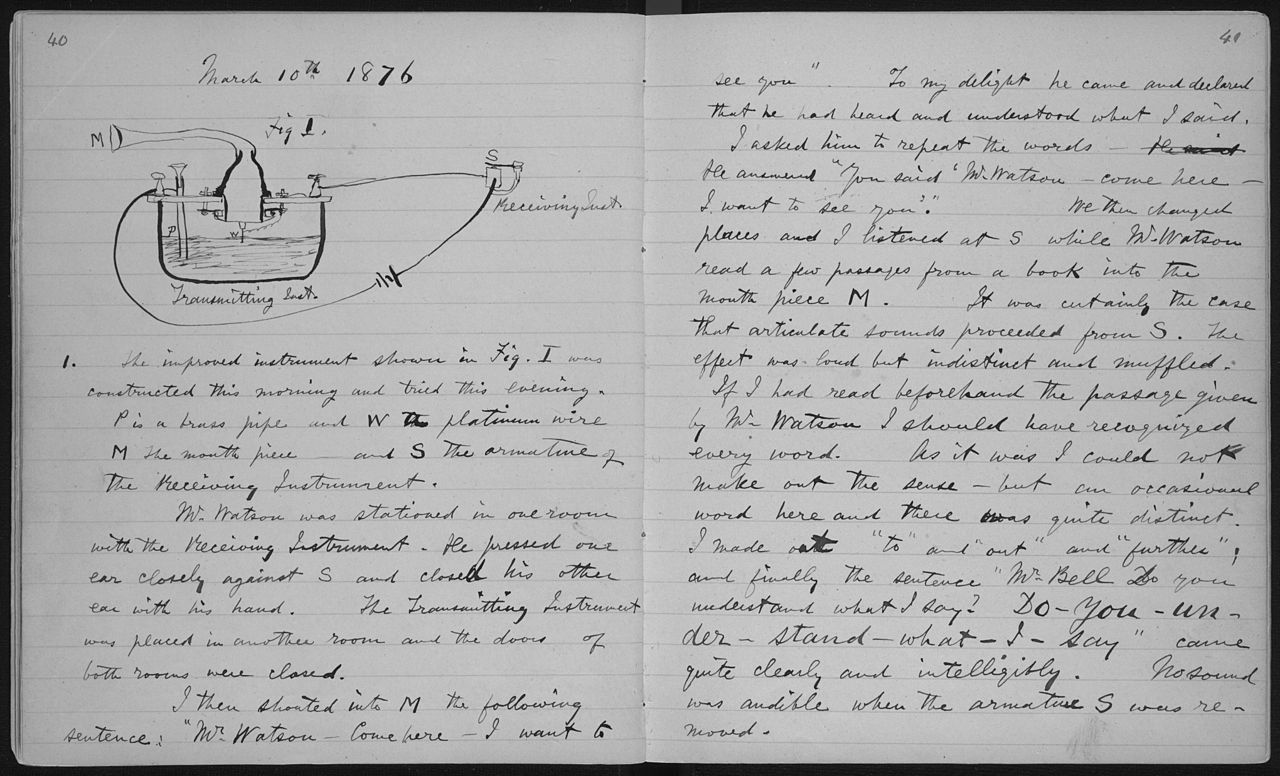 40
March 10th 1876
Fig I.
M
S
Receiving Inst.
P
W
Transmitting Inst.
1. The improved instrument shown in Fig. I was
constructed this morning and tried this evening.
P is a brass pipe and W the platinum wire
M the mouth piece — and S the armature of
the Receiving Instrument.
Mr. Watson was stationed in one room
with the Receiving Instrument. He pressed one
ear closely against S and closed his other
ear with his hand. The Transmitting Instrument
was placed in another room and the doors of
both rooms were closed.
I then shouted into M the following
sentence: "Mr. Watson — Come here — I want to
41
see you". To my delight he came and declared
that he had heard and understood what I said.
I asked him to repeat the words —
He answered "You said 'Mr. Watson — come here —
I want to see you'." We then changed
places and I listened at S while Mr. Watson
read a few passages from a book into the
mouth piece M. It was certainly the case
that articulate sounds proceeded from S. The
effect was loud but indistinct and muffled.
If I had read beforehand the passage given
by Mr. Watson I should have recognized
every word. As it was I could not
make out the sense — but an occasional
word here and there was quite distinct.
I made out "to" and "out" and "further";
and finally the sentence "Mr. Bell Do you
understand what I say? DO — YOU — UN —
der — stand — what — I — say" came
quite clearly and intelligibly. No sound
was audible when the armature S was re-
moved.